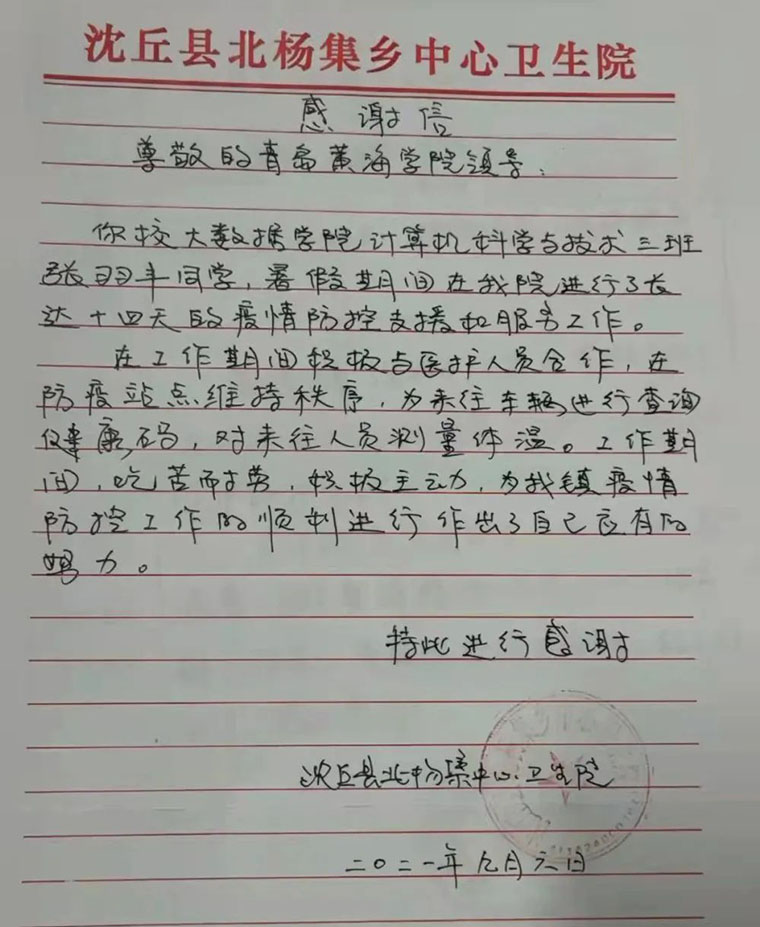 沈丘县北杨集乡中心卫生院
感谢信
尊敬的青岛黄海学院领导:
你校大数据学院计算机科学与技术三班
张羽丰同学,暑假期间在我院进行了长
达十四天的疫情防控支援和服务工作。
在工作期间积极与医护人员合作,在
防疫站点维持秩序,为来往车辆进行查询
健康码,对来往人员测量体温。工作期
间,吃苦而劳,积极主动,为我镇疫情
防控工作的顺利进行作出了自己应有的
努力。
特此进行感谢
沈丘县北杨集中心卫生院
二〇二一年九月六日